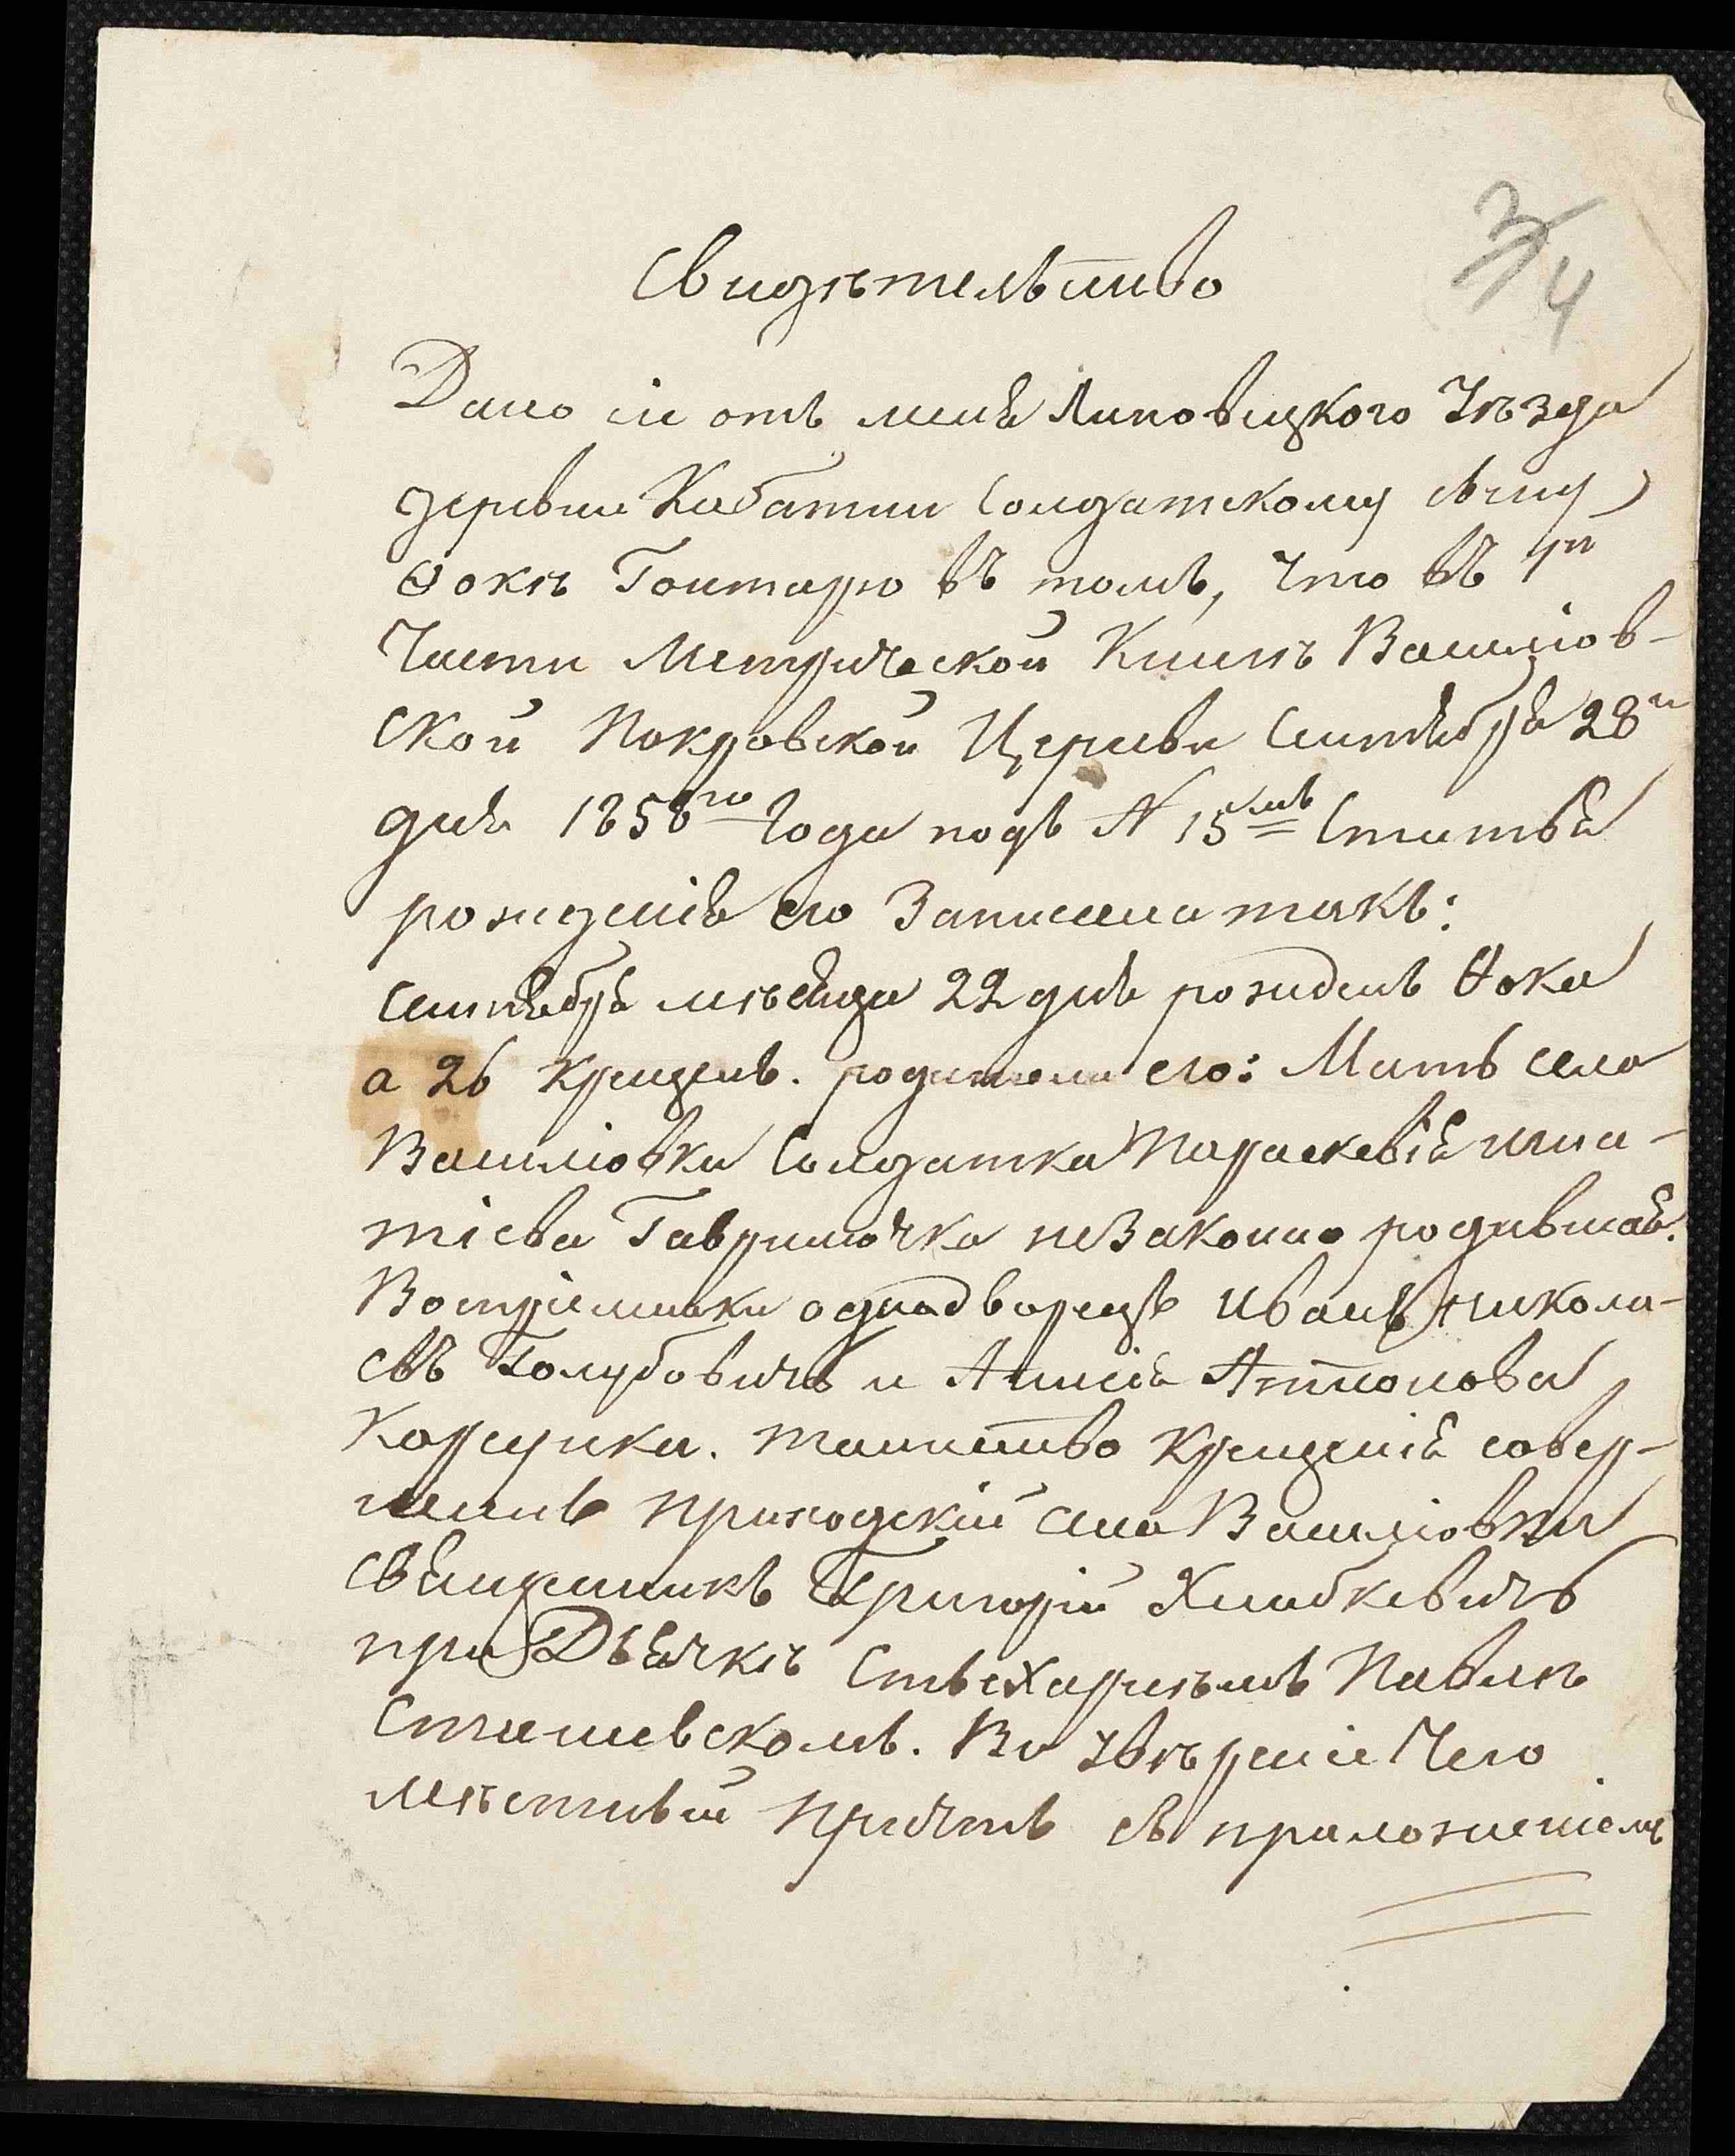 3/4
Свидѣтельство
Дано сіе отъ меня Липовецкого Уѣзда
деревни Кабатни Солдатскому сыну
Ѳокѣ Гонтарю въ томъ, что въ 1й
Части Метрической Книгѣ Василіов-
ской Покровской Церкви Сентября 28го
дня 1858го Года подъ № 15мъ Статья
рожденія его Записана такъ:
Сентября мѣсяца 22 дня рожденъ Ѳока
а 26 крещенъ. родители его: Мать села
Василіовки Солдатка Параскевія Игна-
тіева Гаврилючка незаконно родившая.
Воспріемники однодворецъ Иванъ Никола-
евъ Голубовичъ и Аннисія Антонова
Корсунка. таинство Крещенія совер-
шилъ приходскій села Василіовки
Священникъ Григорій Хлабкевичъ
при Дьячкѣ Стехарнымъ Павлѣ
Сташевскомъ. Во Увѣреніе Чего
мѣстный причтъ съ приложеніемъ